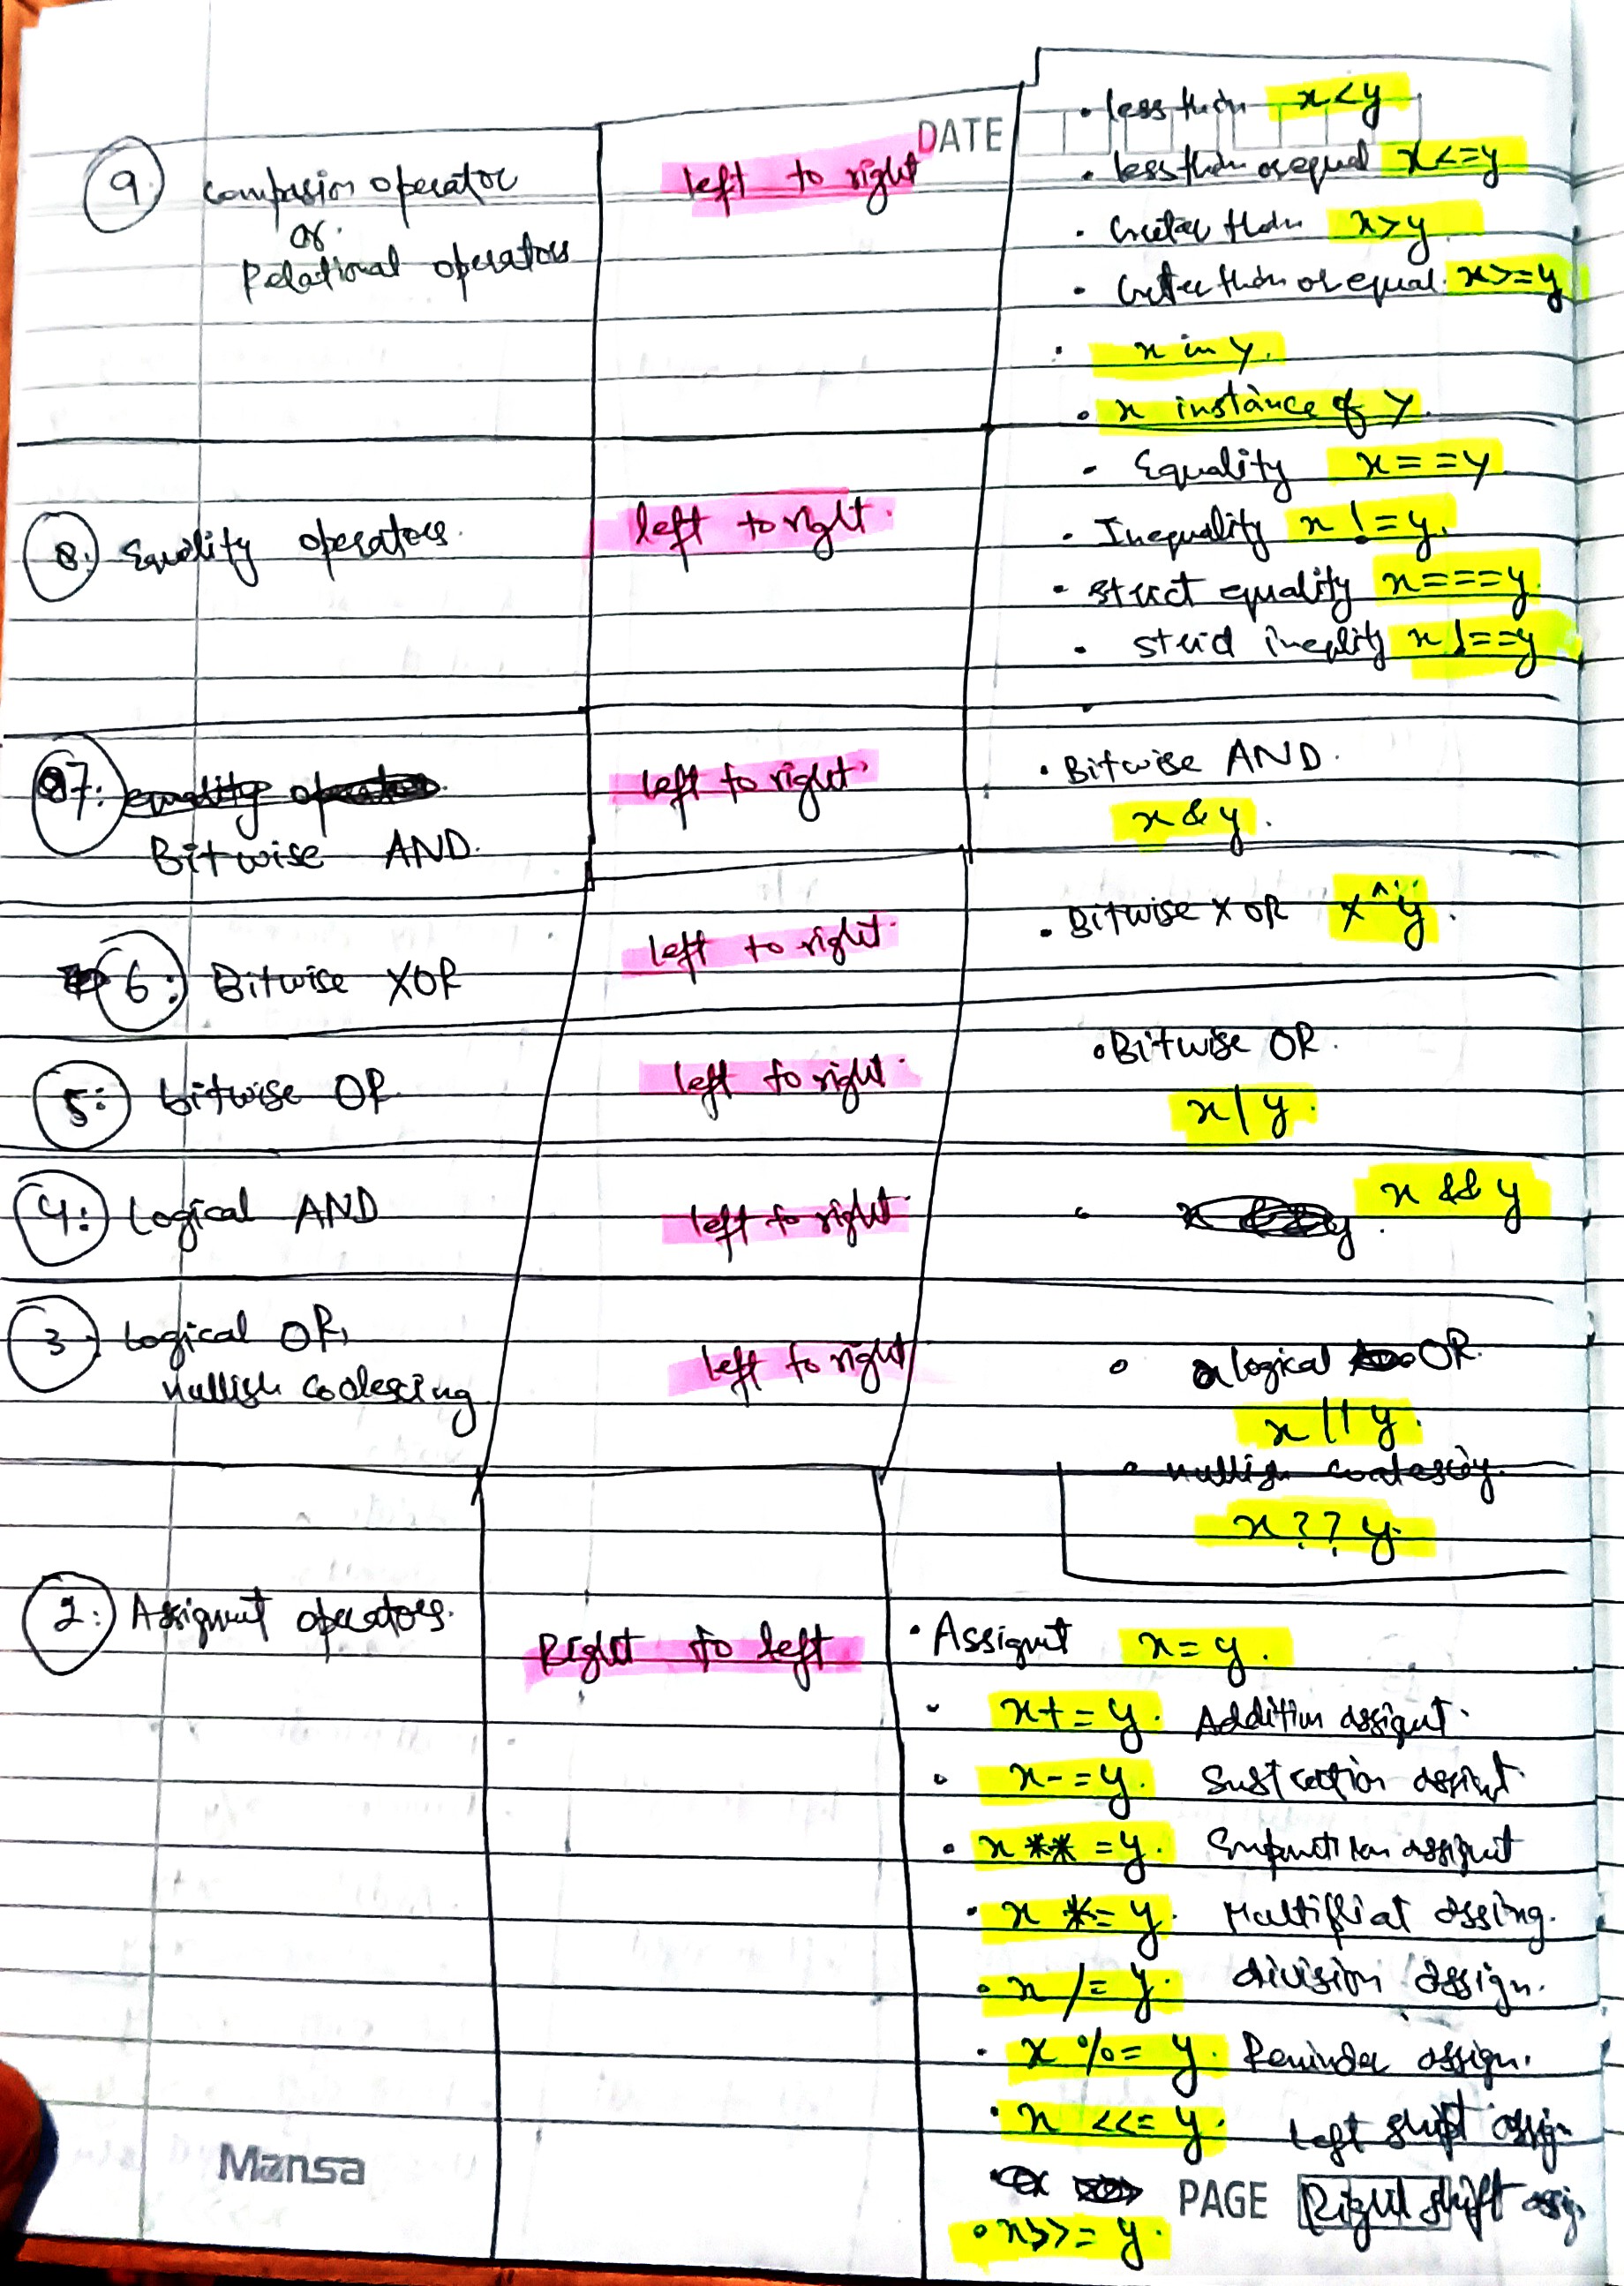 DATE
9. Comparsion operator
or
Relational operators
left to right
• less than x<y
• less than or equal x<=y
• Greter than x>y
• Greter than or equal x>=y
• x in y.
• x instance of y.
8. Equality operators.
left to right.
• Equality x==y
• Inequality x!=y.
• strict equality x===y.
• strid ineqlity x!==y
7:
Bitwise AND.
left to right.
• Bitwise AND.
x & y.
6: Bitwise XOR
left to right.
• Bitwise XOR x^y.
5: bitwise OR
left to right.
• Bitwise OR.
x|y.
4: Logical AND
left to right.
• x && y
3. Logical OR,
nullish coalescing
left to right
• logical OR.
x || y.
• nullish coalescing.
x ?? y.
2: operators.
Right to left
• x = y.
• x+=y. Addition
• x-=y.
• x **=y.
• x *=y.
• x /=y. division assign.
• x %= y. Reminder assign.
• x <<= y. Left shift assign
Right shift assig.
• x>>=y.
Mansa
PAGE